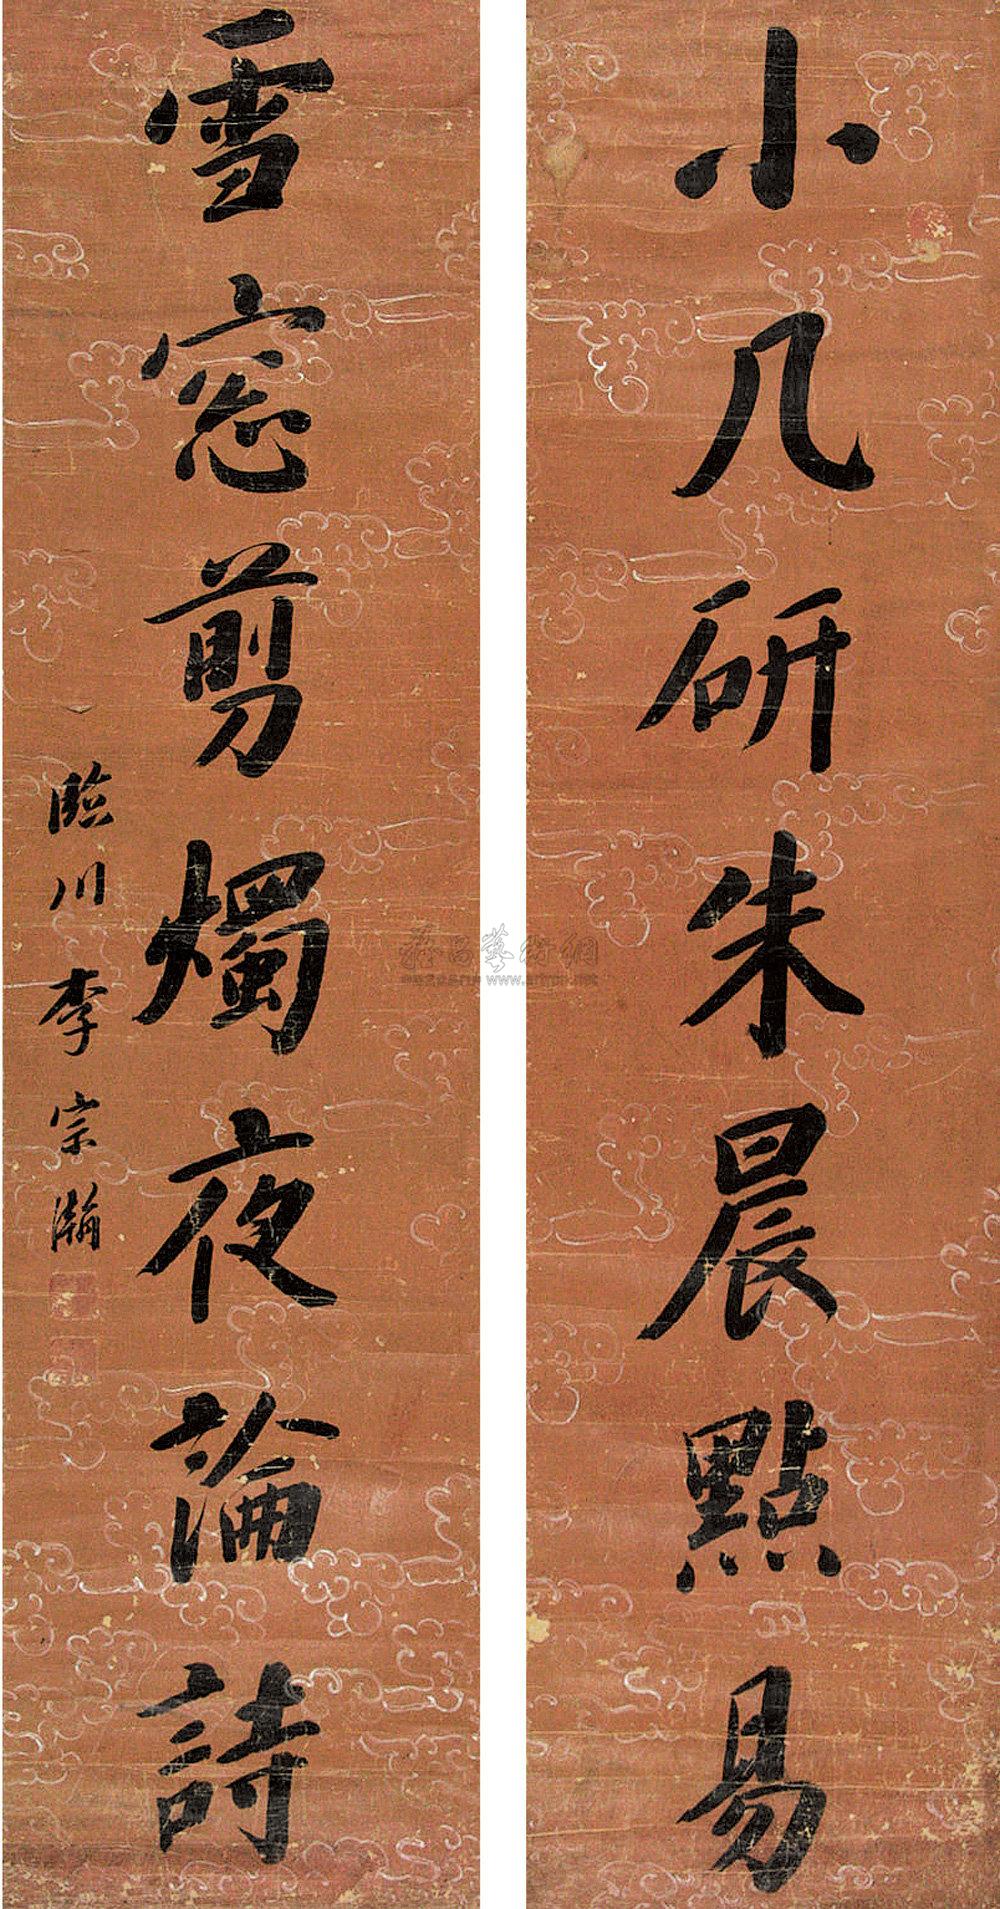 小几研朱晨點易
雪窓剪燭夜論詩
臨川李宗瀚